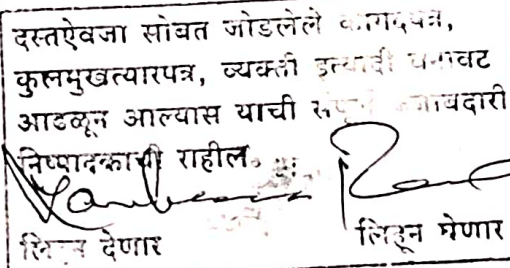 दस्तऐवजा सोबत जोडलेले कागदपत्र,
कुलमुखत्यारपत्र, व्यक्ती इत्यादी बनावट
आढळून आल्यास याची संपूर्ण जबाबदारी
निष्पादकाची राहील.
लिहून देणार लिहून घेणार